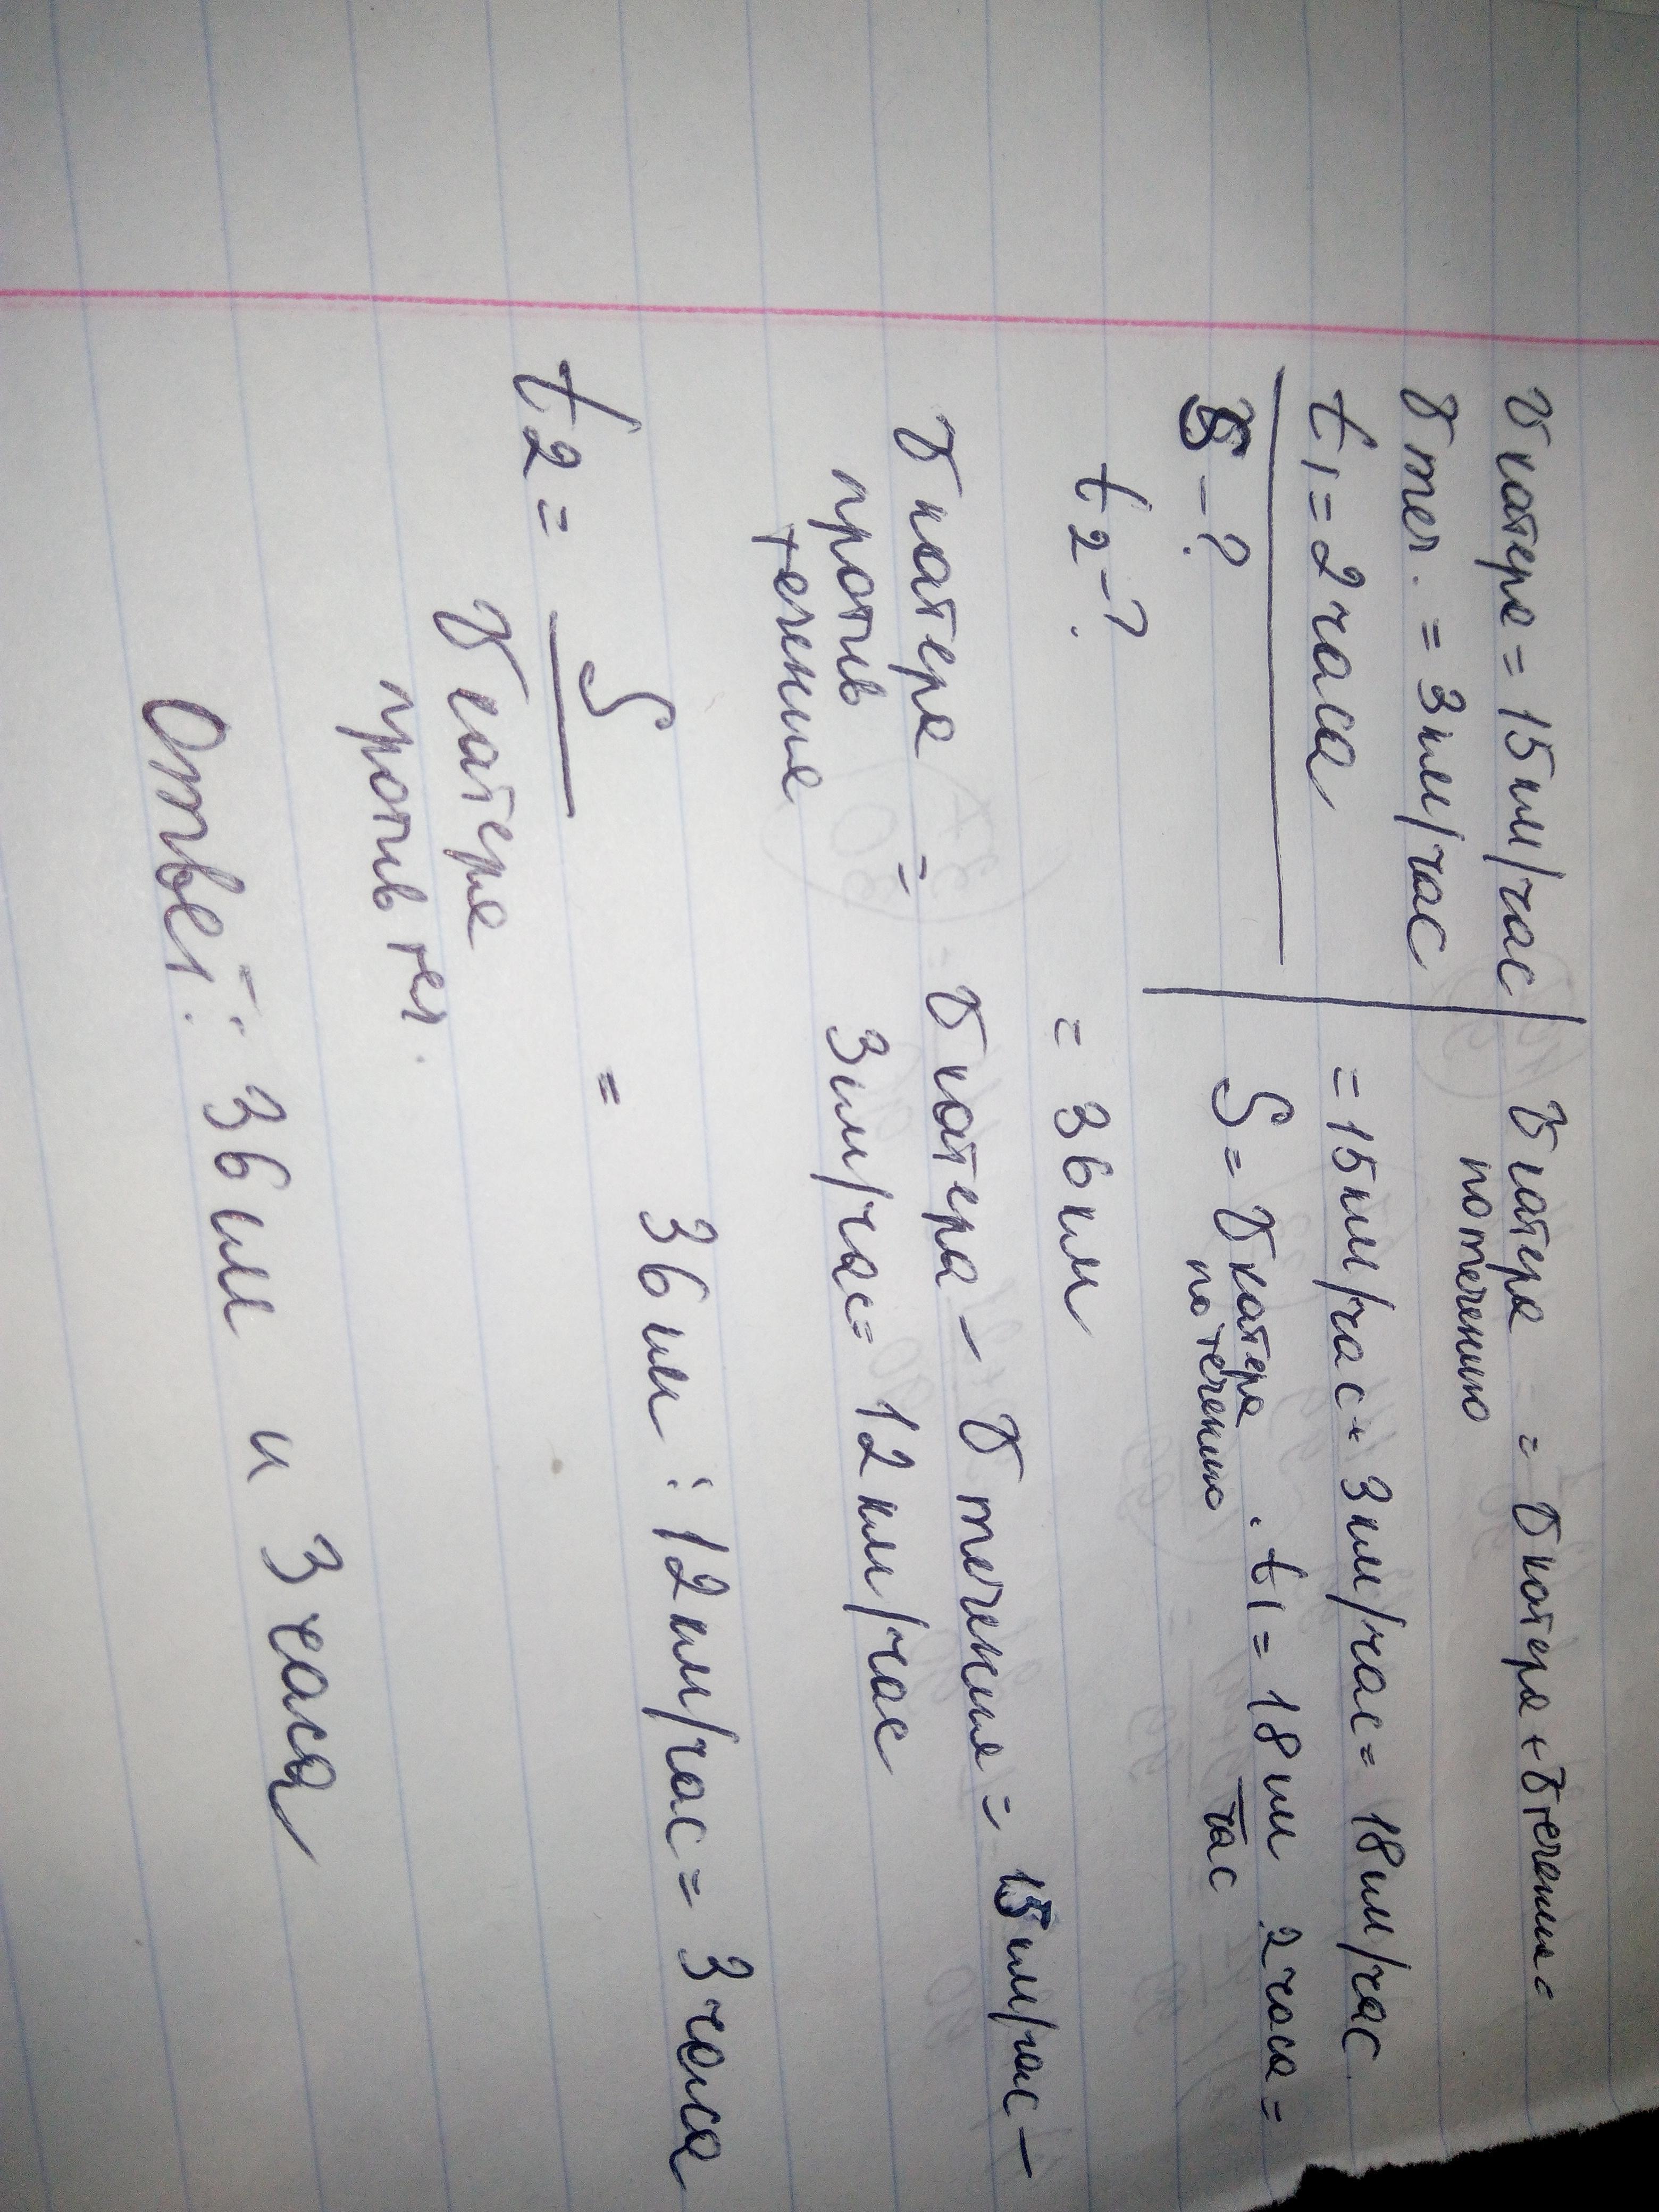 v катера = 15 км/час
v теч. = 3 км/час
t1 = 2 часа
S - ?
t2 - ?
v катера по течению = v катера + v течения =
= 15 км/час + 3 км/час = 18 км/час
S = v катера по течению · t1 = 18 км/час · 2 часа =
= 36 км
v катера против течения = v катера - v течения = 15 км/час -
3 км/час = 12 км/час
t2 = S / v катера против теч. = 36 км : 12 км/час = 3 часа
Ответ: 36 км и 3 часа